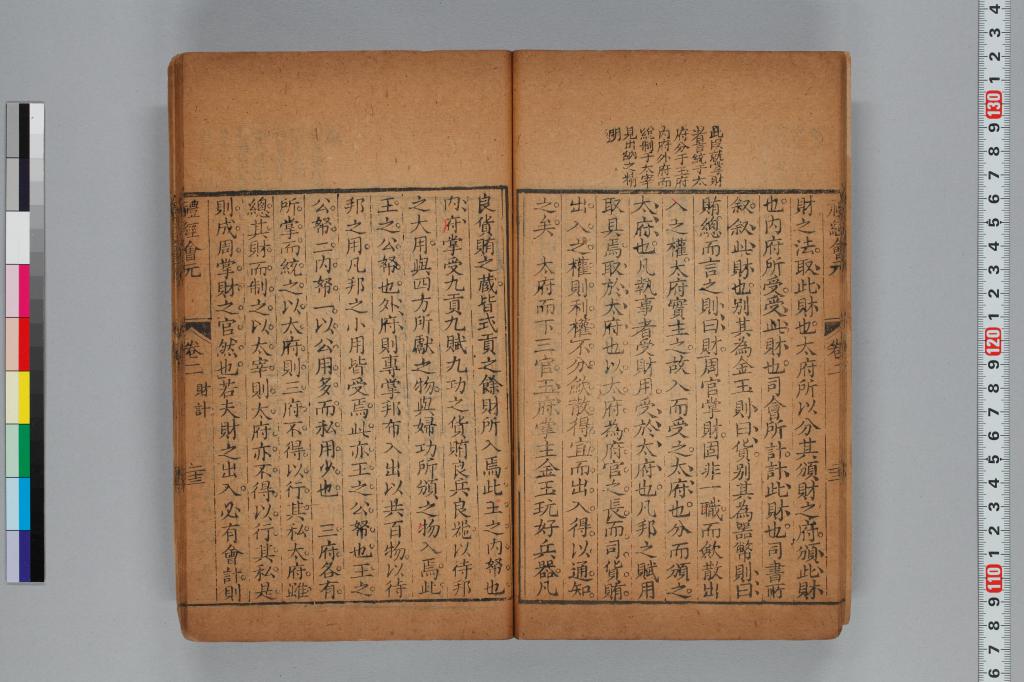 此段就掌財
者言統于太
府分于玉府
内府外府而
統制于太宰
見出納之有
明
財之法取此財也太府所以分其頒財之府頒此財
也内府所受受此財也司會所計計此財也司書所
叙叙此財也別其為金玉則曰貨別其為器幣則曰
賄總而言之則曰財周官掌財固非一職而斂散出
入之權太府實主之故入而受之太府也分而頒之
太府也凡執事者受財用受於太府也凡邦之賦用
取具焉取於太府也以太府為府官之長而司貨賄
出入之權則利權不分斂散得宜而出入得以通知
之矣 太府而下三官玉府掌主金玉玩好兵器凡
良貨賄之藏皆式貢之餘財所入焉此王之内帑也
内府掌受九貢九賦九功之貨賄良兵良器以待邦
之大用與四方所獻之物與婦功所頒之物入焉此
王之公帑也外府則專掌邦布入出以共百物以待
邦之用凡邦之小用皆受焉此亦王之公帑也王之
公帑二内帑一以公用多而私用少也 三府各有
所掌而統之以太府則三府不得以行其私太府雖
總其財而制之以太宰則太府亦不得以行其私是
則成周掌財之官然也若夫財之出入必有會計則
禮經會元 卷二 財計 二十三